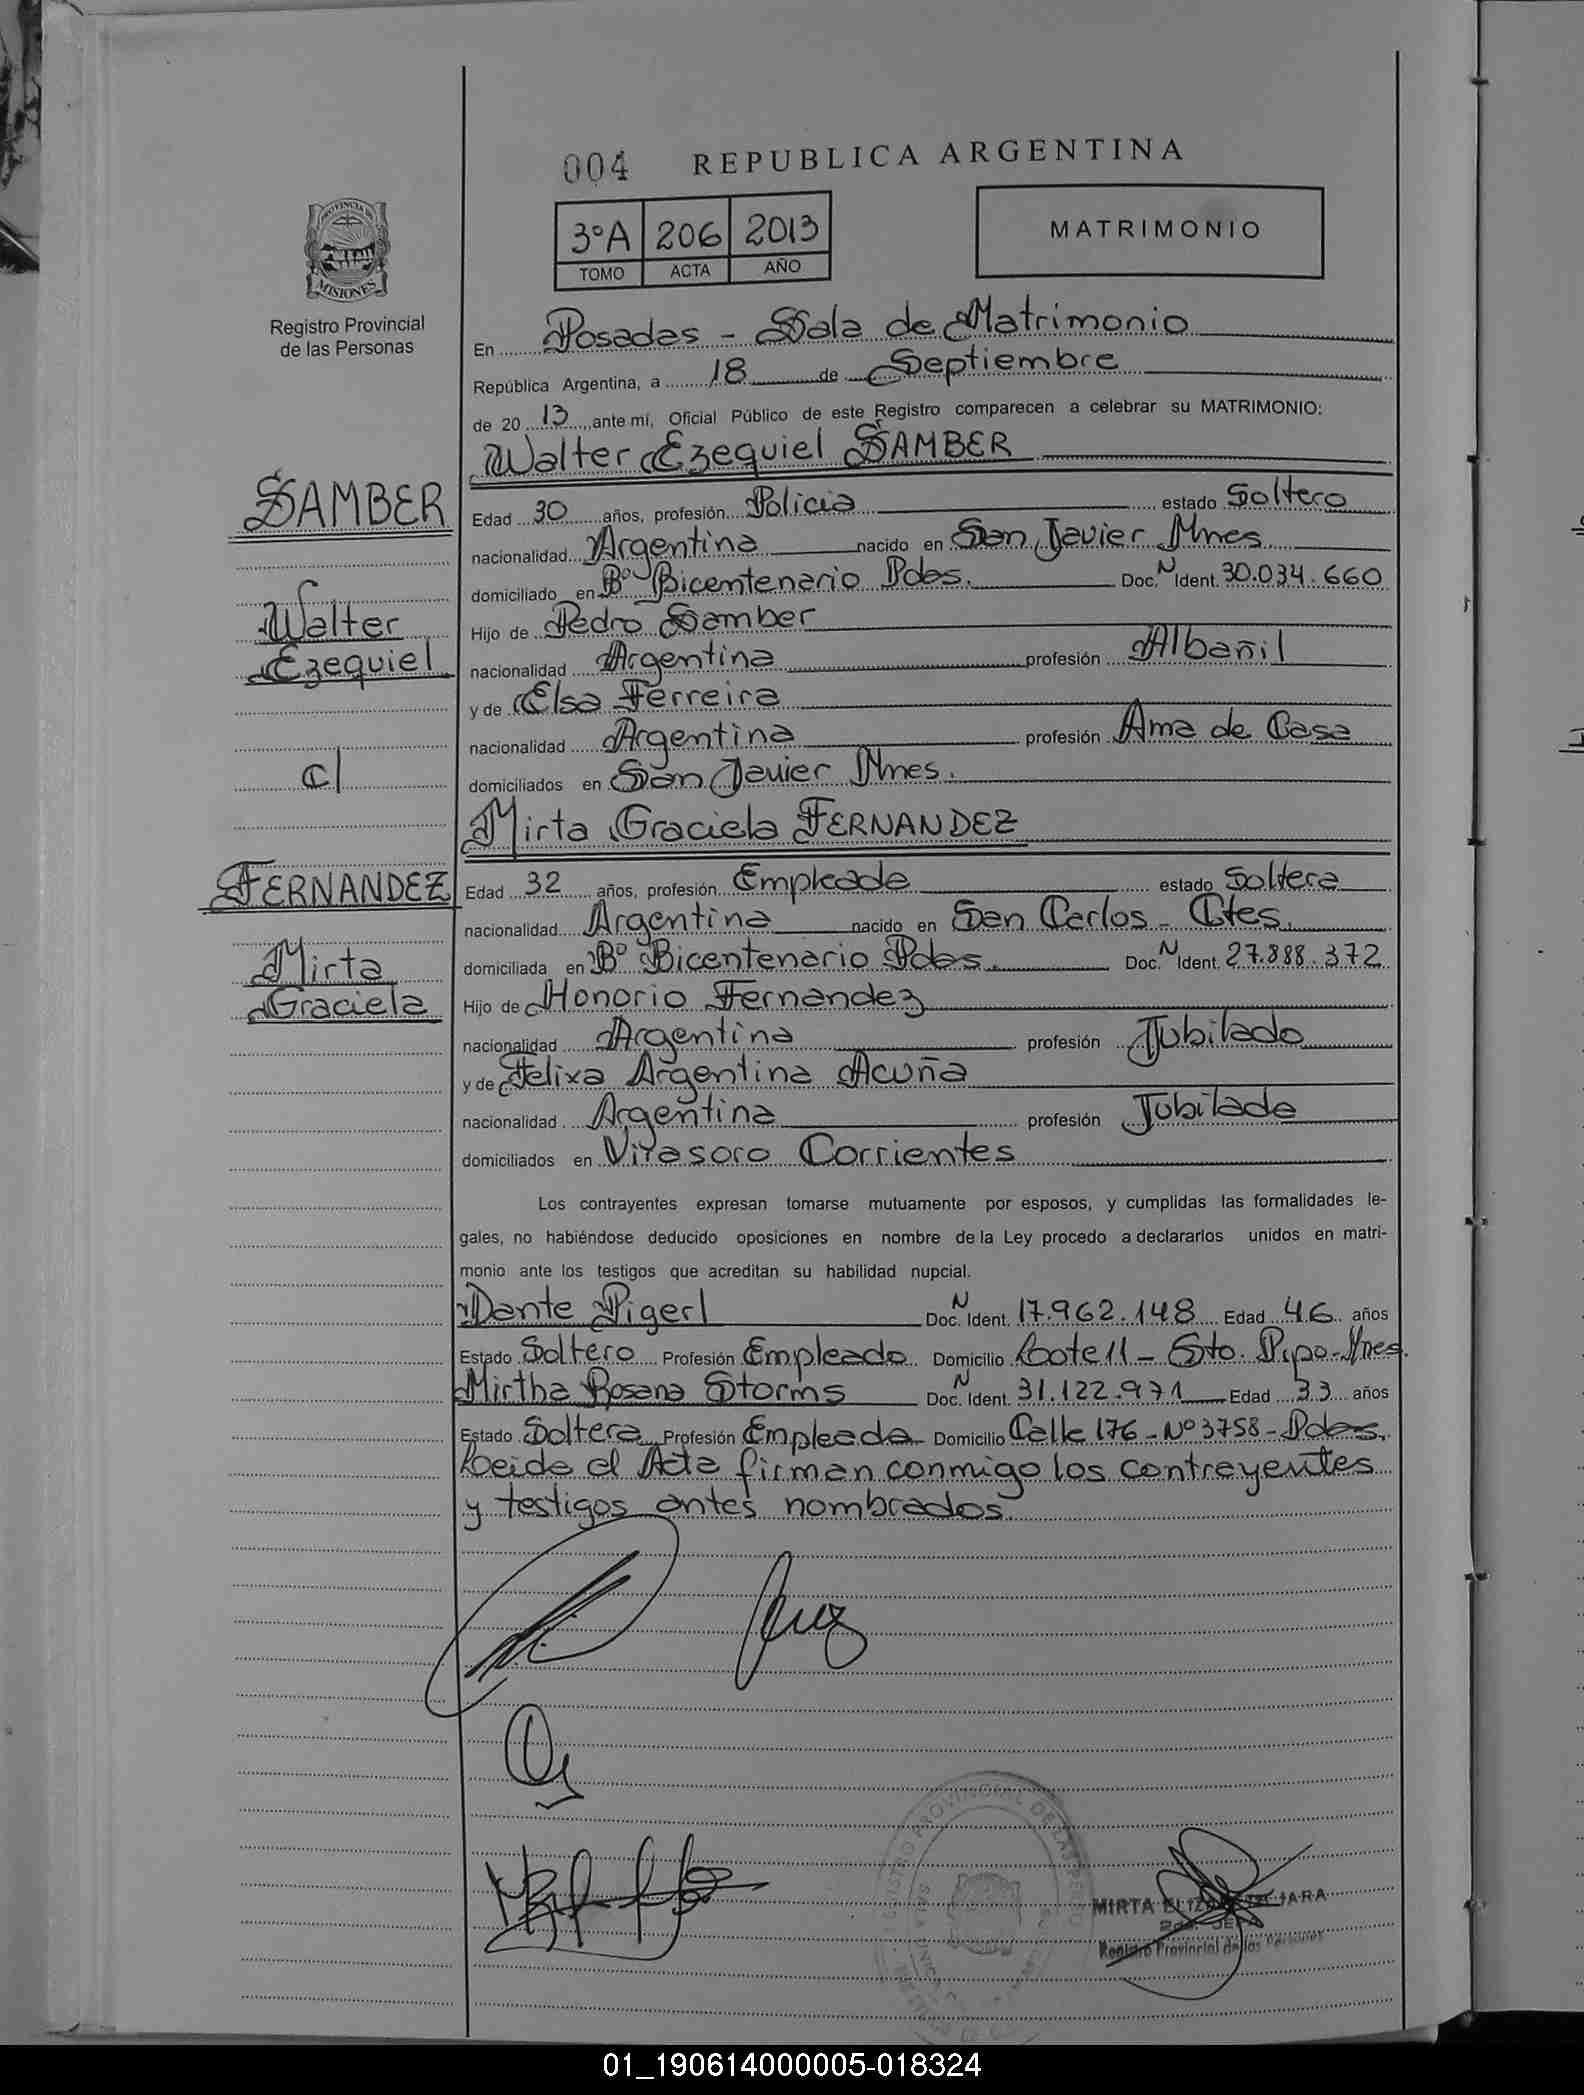 004 REPUBLICA ARGENTINA
PROVINCIA DE
MISIONES
Registro Provincial
de las Personas
3°A 206 2013
TOMO ACTA AÑO
MATRIMONIO
En Posadas - Sala de Matrimonio
República Argentina, a 18 de Septiembre
de 20 13 ante mí, Oficial Público de este Registro comparecen a celebrar su MATRIMONIO:
Walter Ezequiel SAMBER
SAMBER
Walter
Ezequiel
c/
FERNANDEZ
Mirta
Graciela
Edad 30 años, profesión Policia estado Soltero
nacionalidad Argentina nacido en San Javier Mnes
domiciliado en B° Bicentenario Pdas. Doc. N Ident. 30.034.660
Hijo de Pedro Samber
nacionalidad Argentina profesión Albañil
y de Elsa Ferreira
nacionalidad Argentina profesión Ama de Casa
domiciliados en San Javier Mnes.
Mirta Graciela FERNANDEZ
Edad 32 años, profesión Empleada estado Soltera
nacionalidad Argentina nacido en San Carlos - Ctes.
domiciliada en B° Bicentenario Pdas. Doc. N Ident. 27.888.372
Hijo de Honorio Fernandez
nacionalidad Argentina profesión Jubilado
y de Felixa Argentina Acuña
nacionalidad Argentina profesión Jubilada
domiciliados en Virasoro Corrientes
Los contrayentes expresan tomarse mutuamente por esposos, y cumplidas las formalidades le-
gales, no habiéndose deducido oposiciones en nombre de la Ley procedo a declararlos unidos en matri-
monio ante los testigos que acreditan su habilidad nupcial.
Dante Pigerl Doc. N Ident. 17.962.148 Edad 46 años
Estado Soltero Profesión Empleado Domicilio Lote 11 - Gto. Pipo - Mnes.
Mirtha Rosana Storms Doc. N Ident. 31.122.971 Edad 33 años
Estado Soltera Profesión Empleada Domicilio Calle 176 - N° 3758 - Pdas.
Leida el Acta firman conmigo los contrayentes
y testigos antes nombrados.
REGISTRO PROVINCIAL DE LAS PERSONAS
MIRTA JARA
2da. JEFA
Registro Provincial de las Personas
01_190614000005-018324